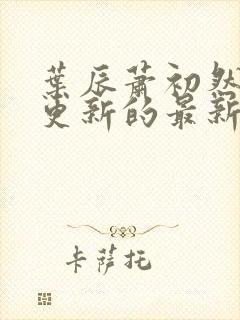 葉辰蕭初然
更新的最新
卡薩托